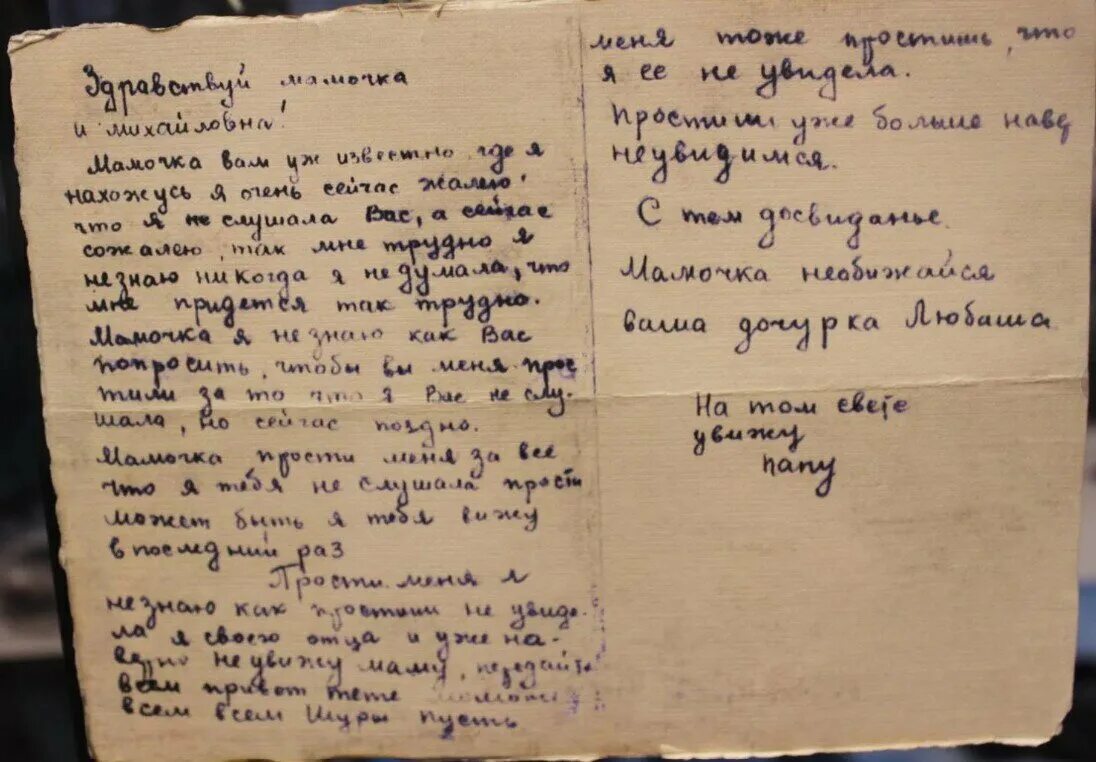 Здравствуй мамочка
и михайловна!
Мамочка вам уж известно где я
нахожусь я очень сейчас жалею,
что я не слушала Вас, а сейчас
сожалею, так мне трудно я
незнаю никогда я не думала, что
мне придется так трудно.
Мамочка я не знаю как Вас
попросить, чтобы вы меня прос
тили за то что я Вас не слу-
шала, но сейчас поздно.
Мамочка прости меня за все
что я тебя не слушала прости
может быть я тебя вижу
в последний раз
Прости меня я
незнаю как простиш не увиде-
ла я своего отца и уже на-
верно не увижу маму, передайте
всем привет тете
всем всем Шуры пусть
меня тоже простишь, что
я ее не увидела.
Простиш уже больше наве
неувидимся.
С тем досвиданье.
Мамочка необижайся
ваша дочурка Любаша
На том свете
увижу
папу